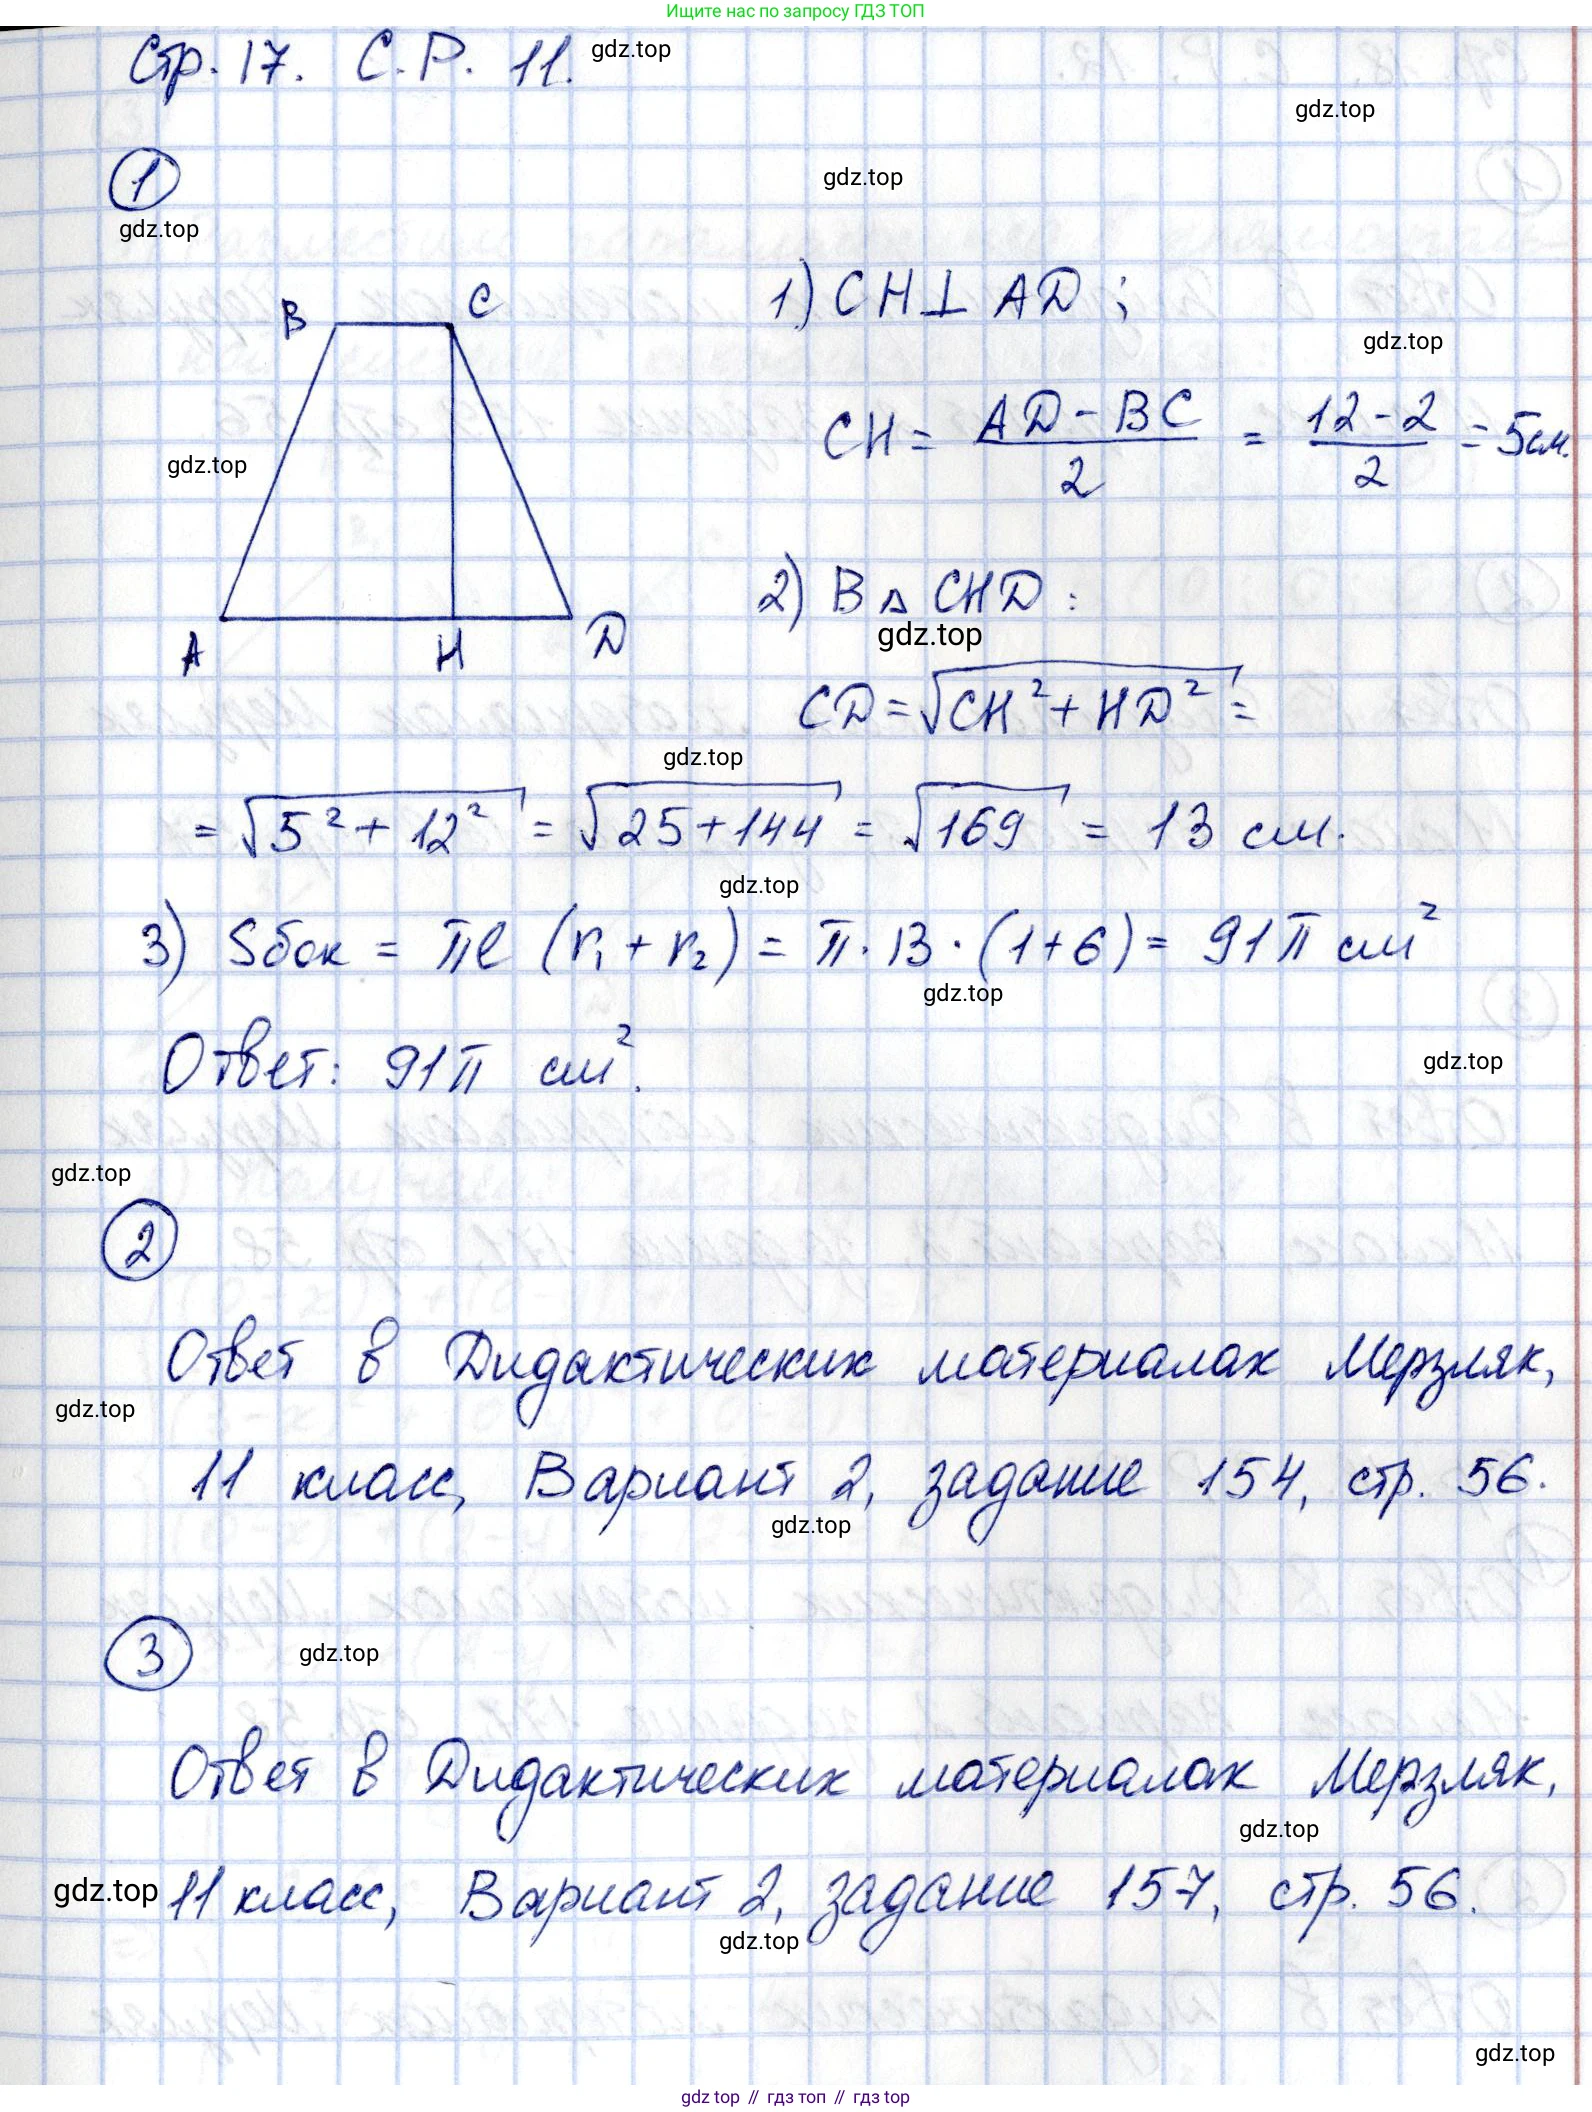 Ищите нас по запросу ГДЗ ТОП
Стр. 17. С.Р. 11. gdz.top
gdz.top
1
gdz.top
gdz.top
B C
1) CH ⊥ AD ;
gdz.top
CH = (AD - BC)/2 = (12 - 2)/2 = 5 см.
gdz.top
2) В △ CHD :
A H D
gdz.top
CD = √(CH² + HD²) =
gdz.top
= √(5² + 12²) = √(25 + 144) = √169 = 13 см.
gdz.top
3) Sбок = πl (r₁ + r₂) = π · 13 · (1 + 6) = 91π см²
gdz.top
Ответ: 91π см².
gdz.top
gdz.top
2
Ответ в Дидактических материалах Мерзляк,
gdz.top
11 класс, Вариант 2, задание 154, стр. 56.
gdz.top
3
gdz.top
Ответ в Дидактических материалах Мерзляк,
gdz.top
gdz.top 11 класс, Вариант 2, задание 157, стр. 56.
gdz.top
gdz.top
gdz top // гдз топ // gdz top